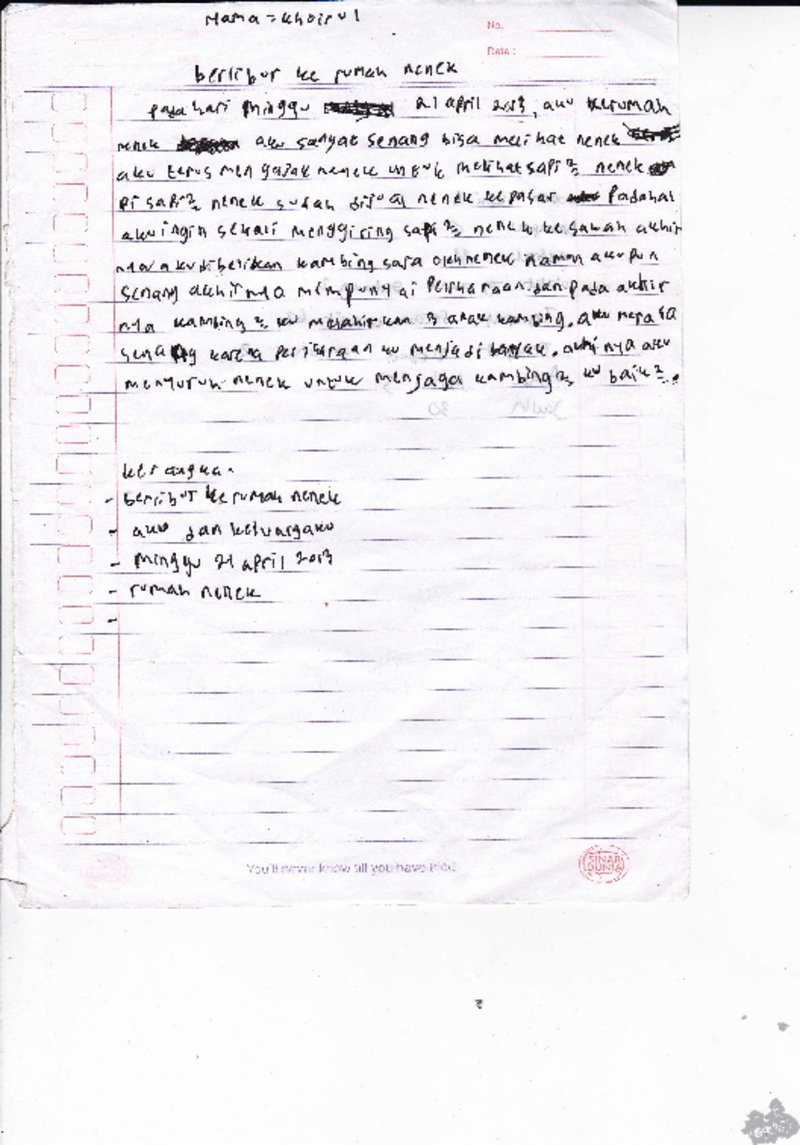 Nama = Khoirul
No.
Date :
berlibur ke rumah nenek
pada hari minggu 21 april 2013, aku kerumah
nenek aku sangat senang bisa melihat nenek
aku terus mengajak nenek untuk melihat sapi² nenek
pi sapi² nenek sudah dijual nenek kepasar Padahal
aku ingin sekali menggiring sapi² nenek ke sawah akhir
nya aku diberikan kambing saja oleh nenek namun aku pun
senang akhirnya mempunyai Peliharaan dan pada akhir
nya kambing² ku melahirkan 3 anak kambing. aku merasa
senang karena peliharaan ku menjadi banyak. akhinya aku
menyuruh nenek untuk menjaga kambing² ku baik².
kerangka.
- berlibur ke rumah nenek
- aku dan keluargaku
- minggu 21 april 2013
- rumah nenek
-
You'll never know till you have tried
SINAR DUNIA